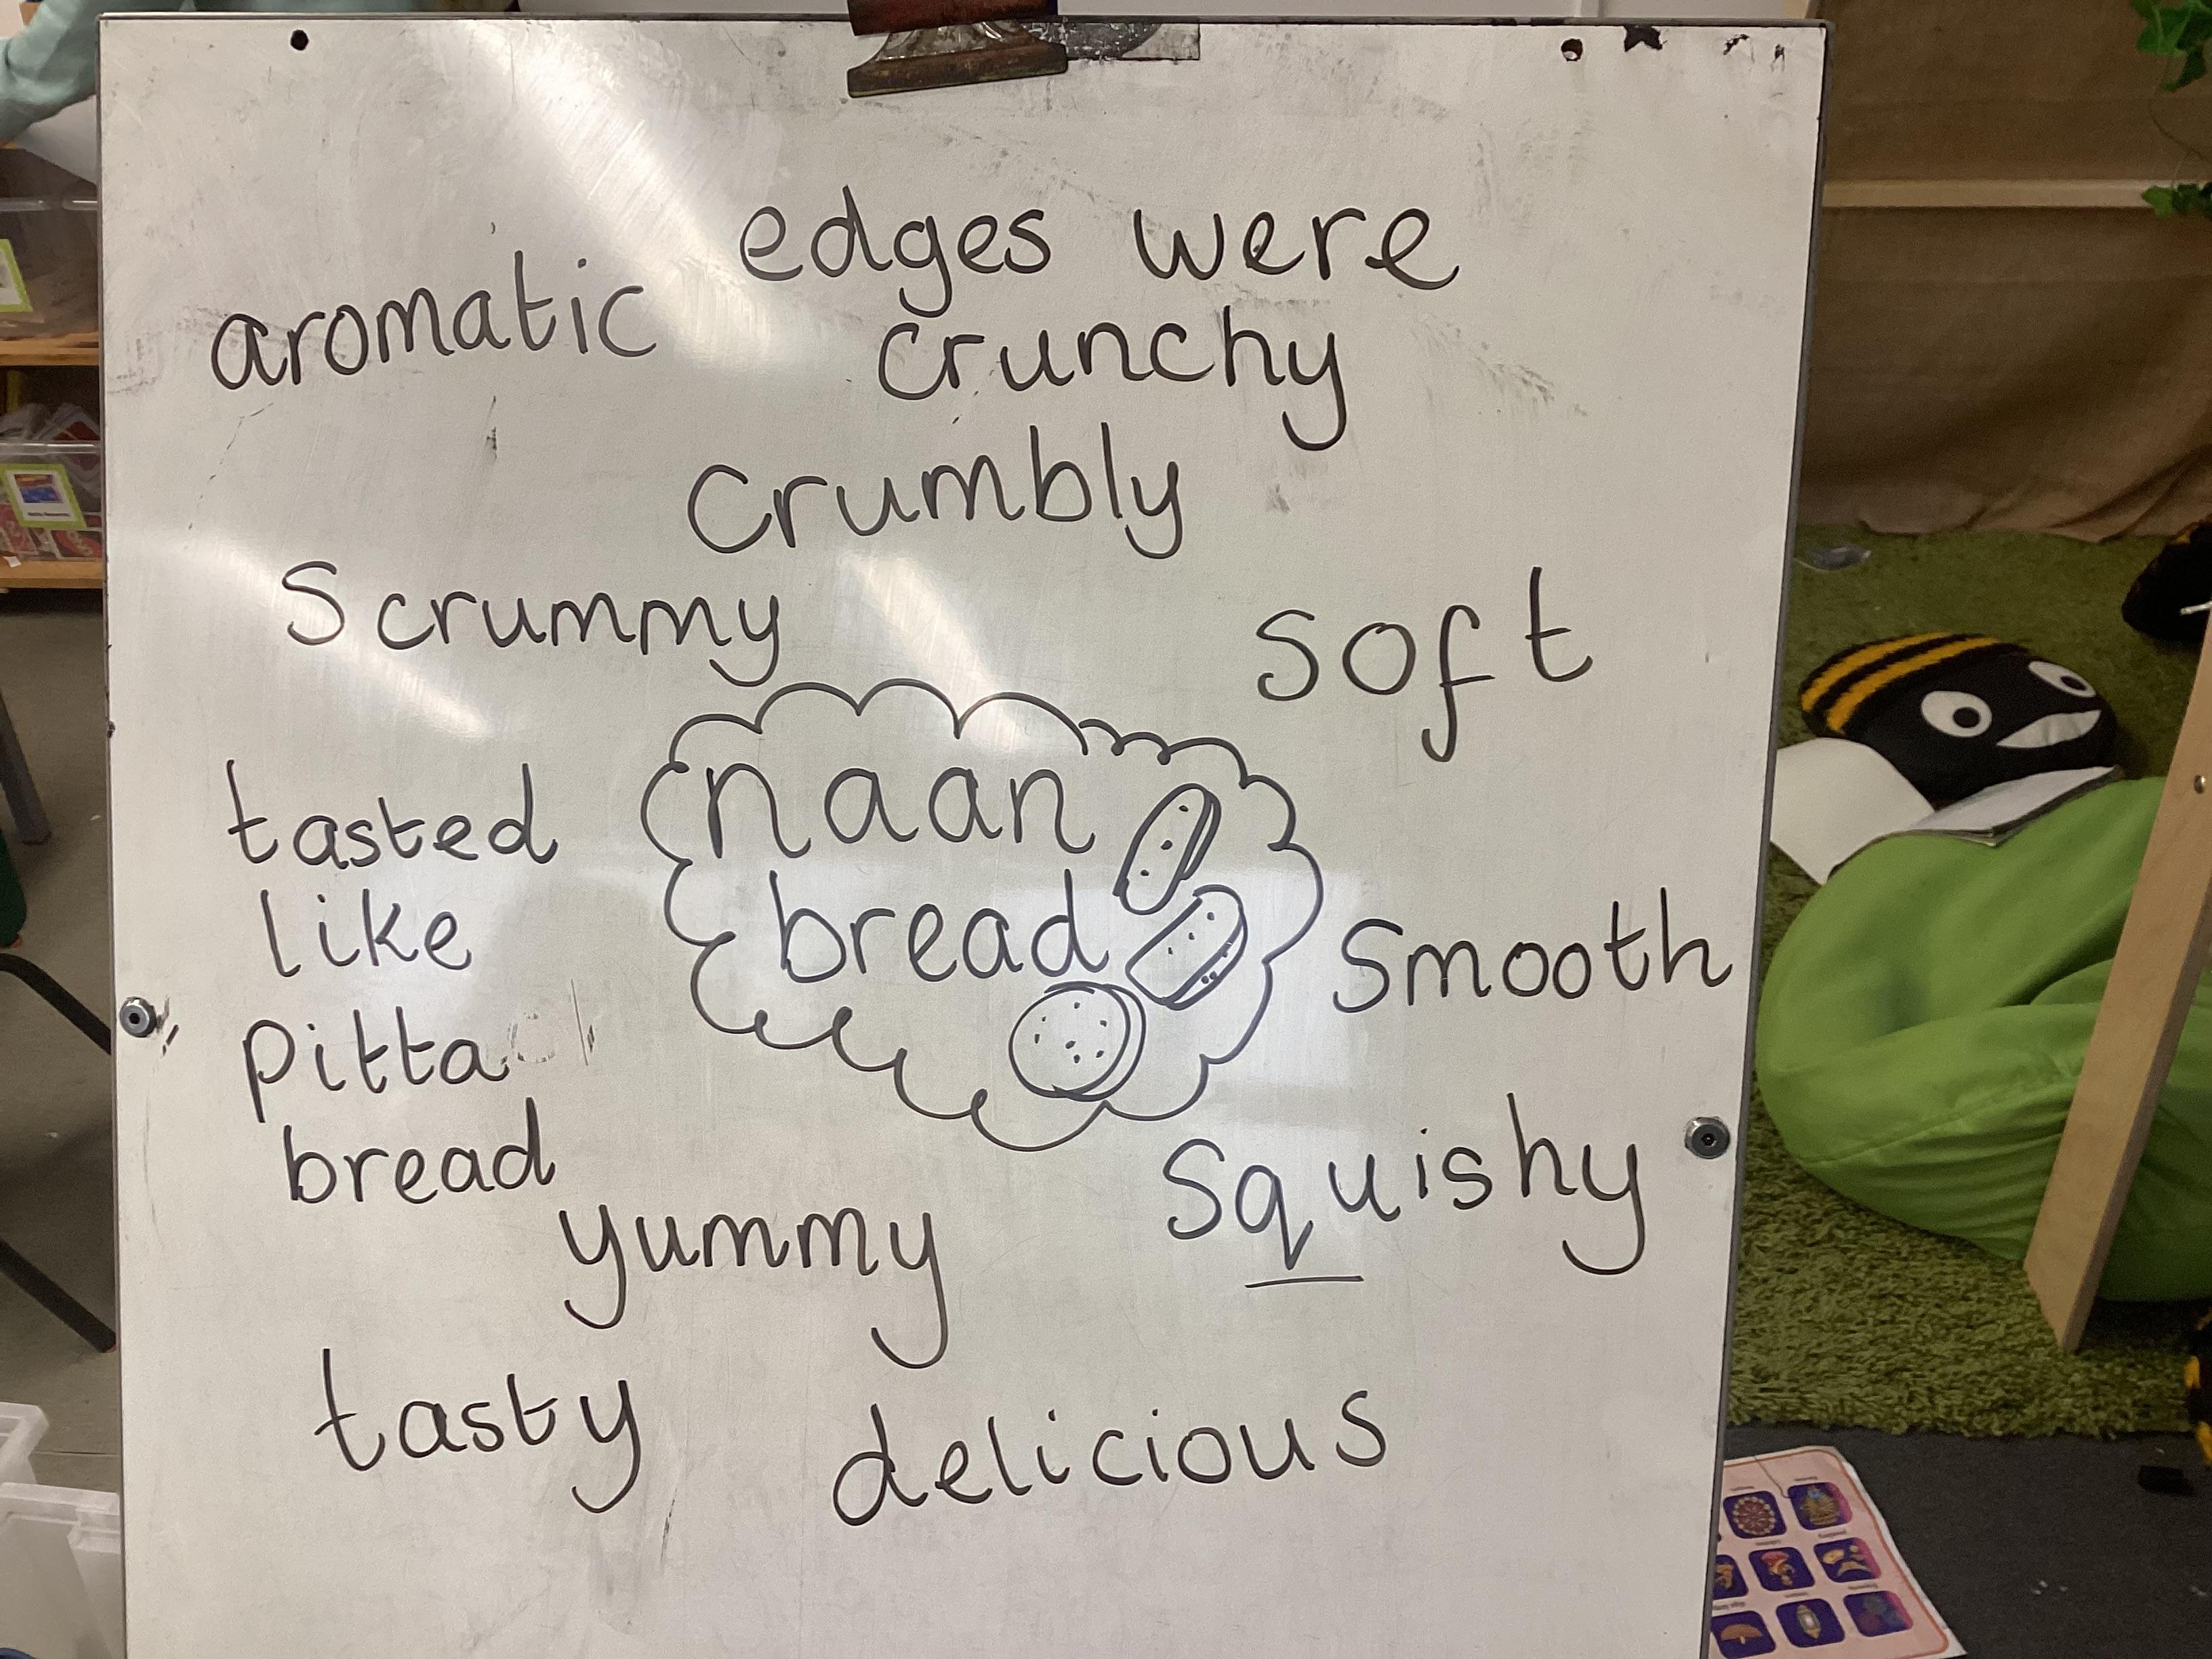 edges were
crunchy
aromatic
crumbly
Scrummy
soft
naan
bread
tasted
like
pitta
bread
smooth
squishy
yummy
tasty
delicious